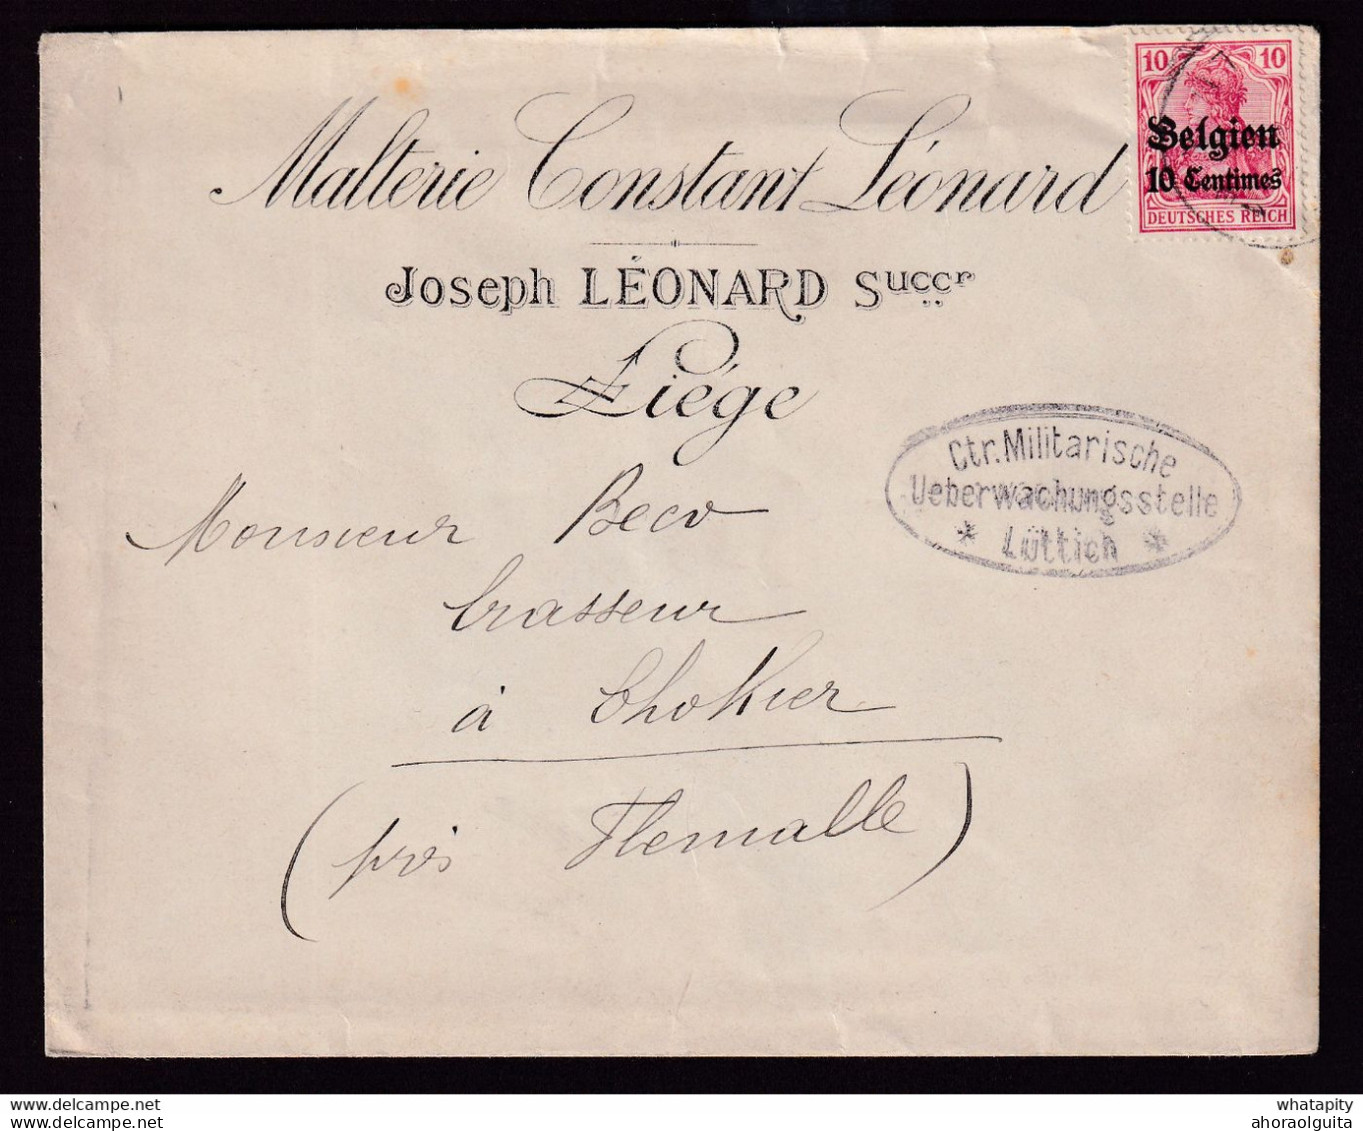 Malterie Constant Léonard
Joseph LÉONARD Succr
Liége
10 10
Belgien
10 Centimes
DEUTSCHES REICH
Ctr. Militarische
Ueberwachungsstelle
* Lüttich *
Monsieur Beco
brasseur
à Chokier
(près Flemalle)
www.delcampe.net
www.delcampe.net
whatapity
ahoraolguita